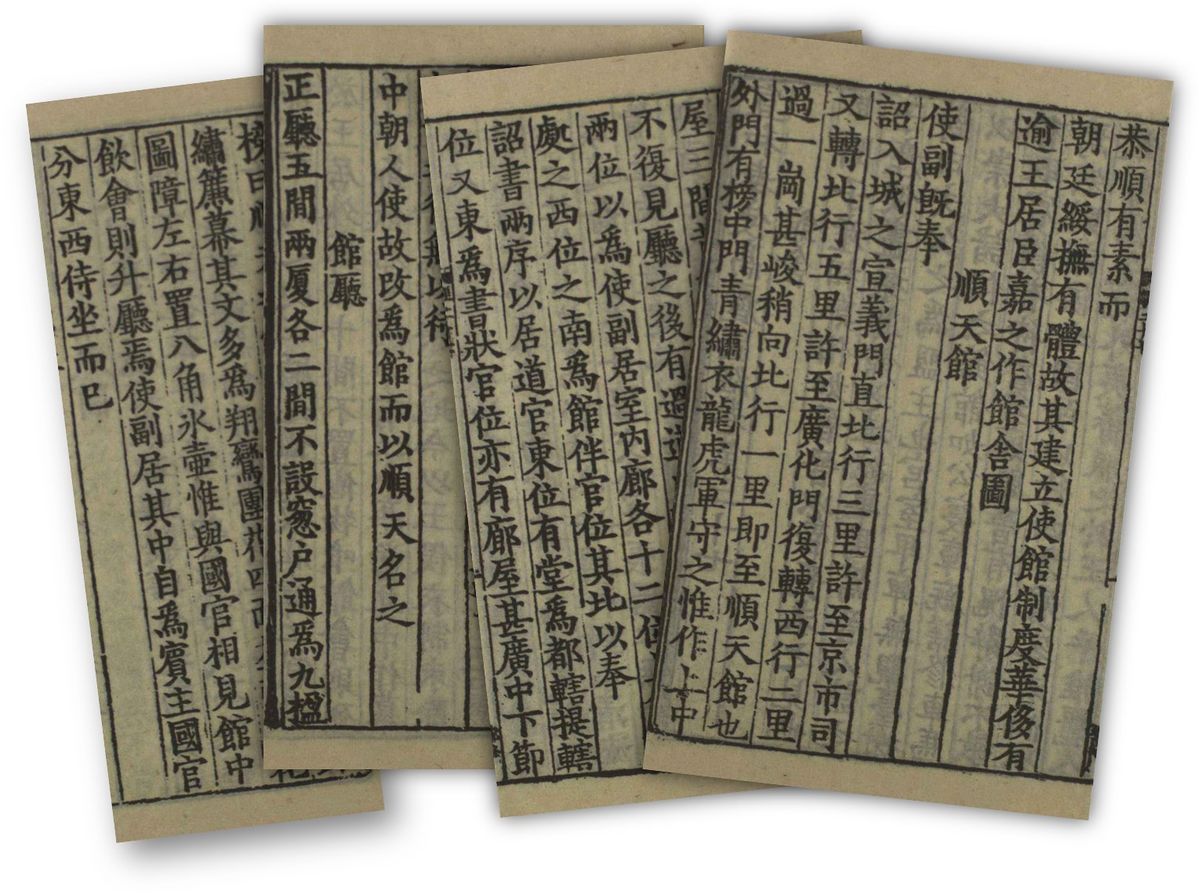 恭順有素而
朝廷綏撫有體故其建立使館制度華侈有
逾王居臣嘉之作館舍圖
順天館
使副旣奉
詔入城之宣義門直北行三里許至京市司
又轉北行五里許至廣化門復轉西行二里
過一崗甚峻稍向北行一里即至順天館也
外門有榜中門青繡衣龍虎軍守之惟作上中
屋三間
不復見廳之後有過道
兩位以爲使副居室內廊各十二位
處之西位之南爲館伴官位其北以奉
詔書兩序以居道官東位有堂爲都轄提轄
位又東爲書狀官位亦有廊屋甚廣中下節
以待
中朝人使故改爲館而以順天名之
館廳
正廳五間兩厦各二間不設窓户通爲九楹
榜曰順
繡簾幕其文多爲翔鸞團花四面
圖障左右置八角氷壺惟與國官相見館中
飲會則升廳焉使副居其中自爲賓主國官
分東西侍坐而已